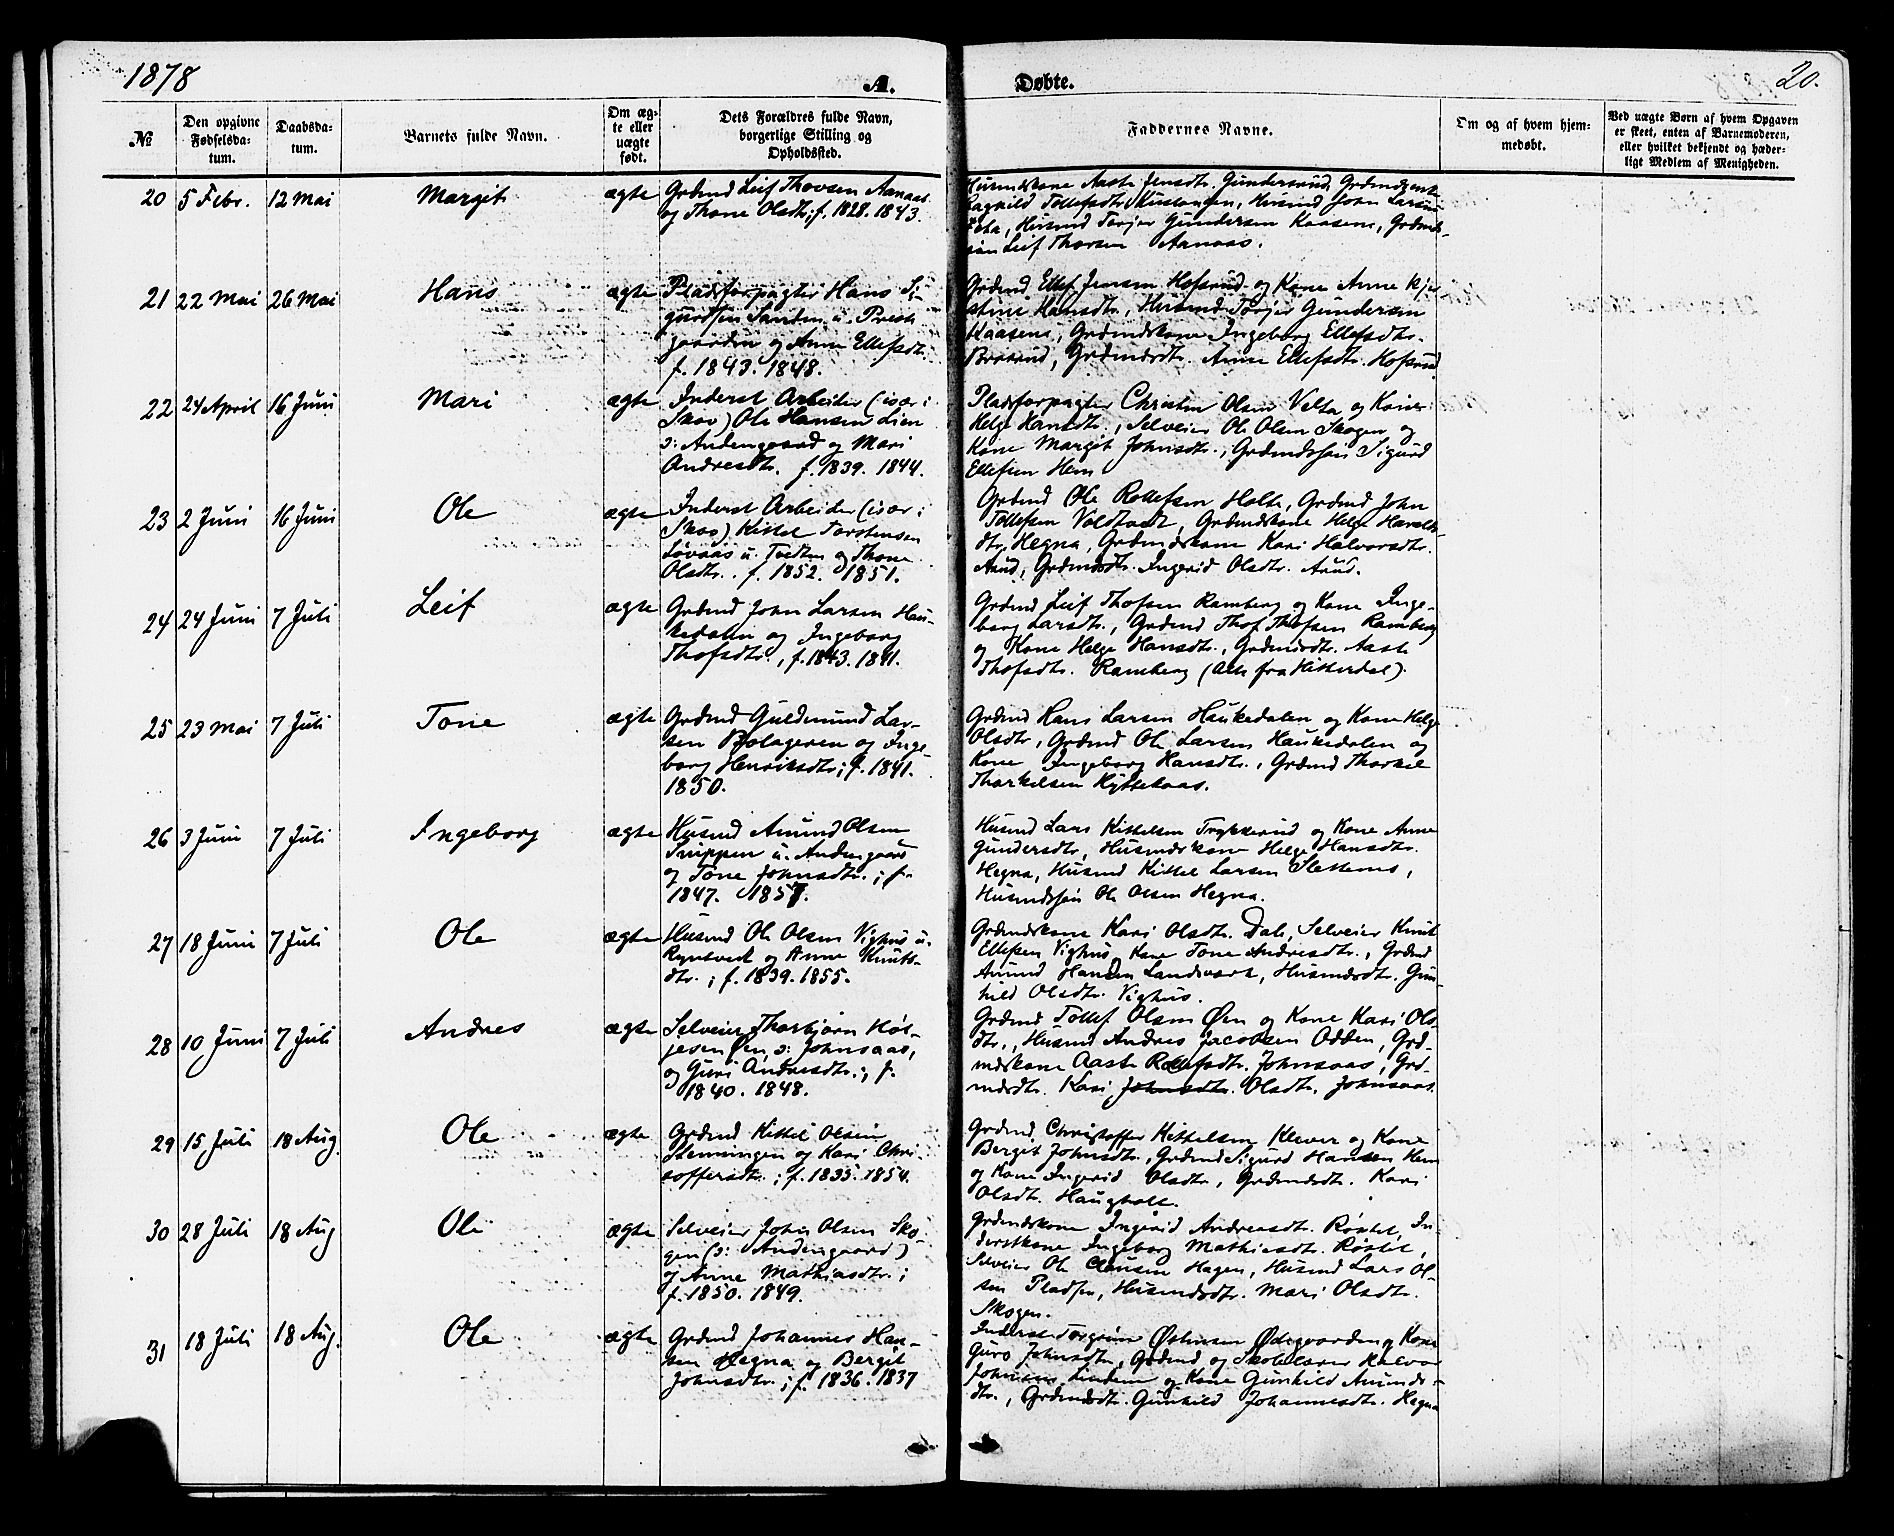 1878
A.
Døbte.
20.
№
Den opgivne Fødselsdatum.
Daabsdatum.
Barnets fulde Navn.
Om ægte eller uægte født.
Dets Forældres fulde Navn, borgerlige Stilling og Opholdssted.
Faddernes Navne.
Om og af hvem hjemmedøbt.
Ved uægte Børn af hvem Opgaven er skeet, enten af Barnemoderen, eller hvilket bekjendt og hæderligt Medlem af Menigheden.
20 5 Febr. 12 Mai Margit ægte
Grdmd Leif Thovsen Aanaas
og Thone Olsdtr; f. 1828. 1843.
Husmdskone Aaste Jensdtr. Gundersrud,
Ragnhild Tollefsdtr. Husmd John Larsen
Husmd Torjer Gundersen Kaasene, Grdmd-
søn Leif Thorsen Aanaas.
21 22 Mai 26 Mai Hans ægte
Pladsforpagter Hans Si-
gurdsen Sanden u. Prest-
gaarden og Anne Ellefsdtr.
f. 1843. 1848.
Grdmd Ellef Jensen Hofsrud og Kone Anne Kjer-
stine Hansdtr., Husmd Torjer Gundersen
Kaasene, Grdmdskone Ingeborg Ellefsdtr.
Grdmdsdtr. Anne Ellefsdtr. Hofsrud
22 24 April 16 Juni Mari ægte
Inderst Arbeider (især i
Skov) Ole Hansen Lien
ɔ: Andengaard og Mari
Andresdtr. f. 1839. 1844.
Pladsforpagter Christen Olsen Velta og Kone
Helge Hansdtr., Selveier Ole Olsen Skogen og
Kone Margit Johnsdtr., Grdmdssøn Sigurd
Ellefsen Hem
23 2 Juni 16 Juni Ole ægte
Inderst Arbeider (især i
Skov) Kittel Torstensen
Løvaas u. Tvedten og Thone
Olsdtr. f. 1852. 1851.
Grdmd Ole Rollefsen Holte, Grdmd John
Tollefsen Voldstadt, Grdmdskone Helge Harolds-
dtr. Hegna, Grdmdskone Kari Halvorsdtr.
Grdmdsdtr. Ingerid Olsdtr.
24 24 Juni 7 Juli Leif ægte
Grdmd John Larsen Hau-
kedalen og Ingeborg
Thofsdtr., f. 1843. 1841.
Grdmd Leif Thofsen Ramberg og Kone Inge-
borg Larsdtr., Grdmd Thof Thofsen Ramberg
og Kone Helge Hansdtr., Grdmdsdtr. Aaste
Thofsdtr. Ramberg (Alle fra Hitterdal).
25 23 Mai 7 Juli Tone ægte
Grdmd Guldmund Lar-
sen Bolageren og Inge-
borg Henriksdtr; f. 1841.
1850.
Grdmd Hans Larsen Haukedalen og Kone Helge
Olsdtr, Grdmd Ole Larsen Haukedalen og
Kone Ingeborg Hansdtr., Grdmd Thorkil
Thorkelsen Kyttekaas.
26 3 Juni 7 Juli Ingeborg ægte
Husmd Amund Olsen
Snippen u. Andengaard
og Tone Johnsdtr.; f.
1847. 1857.
Husmd Lars Kittelsen Trykkerud og Kone Anne
Gundersdtr, Husmdskone Helge Hansdtr.
Hegna, Husmd Kittel Larsen Slettemo,
Husmdssøn Ole Olsen Hegna.
27 18 Juni 7 Juli Ole ægte
Husmd Ole Olsen Vighus u.
Ryntveit og Anne Knuts-
dtr.; f. 1839. 1855.
Grdmdskone Kari Olsdtr. Dale, Selveier Knut
Ellefsen Vighus, Kone Tone Andresdtr., Grdmd
Amund Hansen Landsverk, Husmdsdtr. Gun-
hild Olsdtr. Vighus.
28 10 Juni 7 Juli Andres ægte
Selveier Thorbjørn Høl-
jesen Øen, ɔ: Johnsaas,
og Guri Andresdtr.; f.
1840. 1848.
Grdmd Tollef Olsen Øen og Kone Kari Ols-
dtr., Husmd Andres Jacobsen Odden, Grd-
mdskone Aaste Rollefsdtr. Johnsaas, Grd-
mdsdtr. Kari Johnsdtr. Olsdtr. Johnsaas.
29 15 Juli 18 Aug. Ole ægte
Grdmd Kittel Olsen
Stensingen og Kari Chri-
stoffersdtr.; f. 1835. 1854.
Grdmd Christoffer Kittelsen Klever og Kone
Bergit Johnsdtr., Grdmd Sigurd Hansen Hem
og Kone Ingerid Olsdtr., Grdmdsdtr. Kari
Olsdtr. Haugholt.
30 28 Juli 18 Aug Ole ægte
Selveier John Olsen Sko-
gen (ɔ: Andengaard)
og Anne Mathiasdtr.;
f. 1850. 1849.
Grdmdskone Ingerid Andreasdtr. Røstel, In-
derstkone Ingeborg Mathiesdtr. Røstel,
Selveier Ole Clausen Hagen, Husmd Lars Ol-
sen Pladsen, Husmdsdtr. Mari Olsdtr.
Skogen.
31 18 Juli 18 Aug. Ole ægte
Grdmd Johannes Han-
sen Hegna og Bergit
Johnsdtr.; f. 1836. 1837
Inderst Torgrim Østensen Ødegaarden og Kone
Guro Johnsdtr., Grdmd og Skolelærer Halvor
Johnsen Linden og Kone Gunhild Amunds-
dtr., Grdmdsdtr. Gunhild Johannesdtr. Hegna